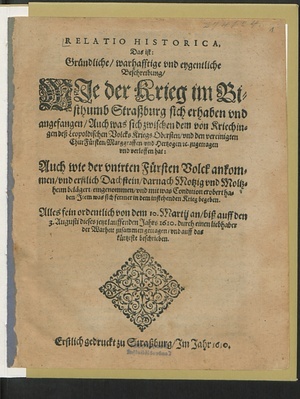 RELATIO HISTORICA,
Das ist:
Gründliche/ warhafftige vnd eygentliche
Beschreibung/
Wie der Krieg im Bi-
sthumb Straßburg sich erhaben vnd
angefangen/ Auch was sich zwischen dem von Kriechin-
gen deß Leopoldischen Volcks Kriegs Obersten/ vnd den vereinigten
Chur Fürsten/ Marggraffen vnd Hertzogen ꝛc. zugetragen
vnd verloffen hat:
Auch wie der vnirten Fürsten Volck ankom-
men/ vnd erstlich Dachstein/ darnach Motzig vnd Moltz-
heim belägert/ eingenommen/ vnd mit was Condition erobert ha-
ben Item was sich ferner in dem instehenden Krieg begeben.
Alles fein ordenlich von dem 10. Martij an/ biß auff den
3. Augusti dieses jetzt lauffenden Jahrs 1610. durch einen liebhaber
der Warheit zusammen getragen/ vnd auff das
kürtzeste beschrieben.
Erstlich gedruckt zu Straßburg/ Im Jahr 1610.